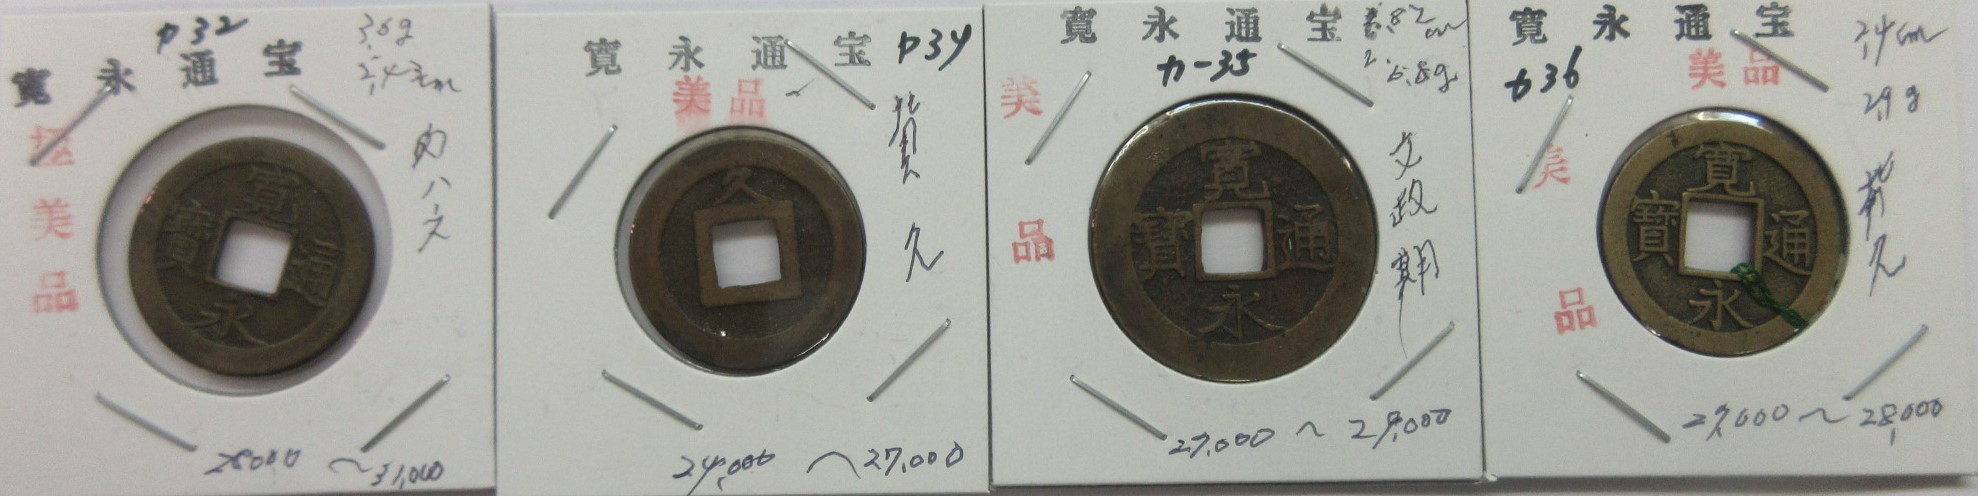 カ32
3.6g
2.43cm
寛永通宝
極美品
ハス
寛通永寳
28000〜31,000
寛永通宝
カ34
美品
久
久
24,000〜27,000
寛永通宝
カ-35
6.8g
美品
文政期
寛通永寳
27,000〜29,000
寛永通宝
カ36
美品
2.4cm
2.9g
美品
久
寛通永寳
27,000〜28,000